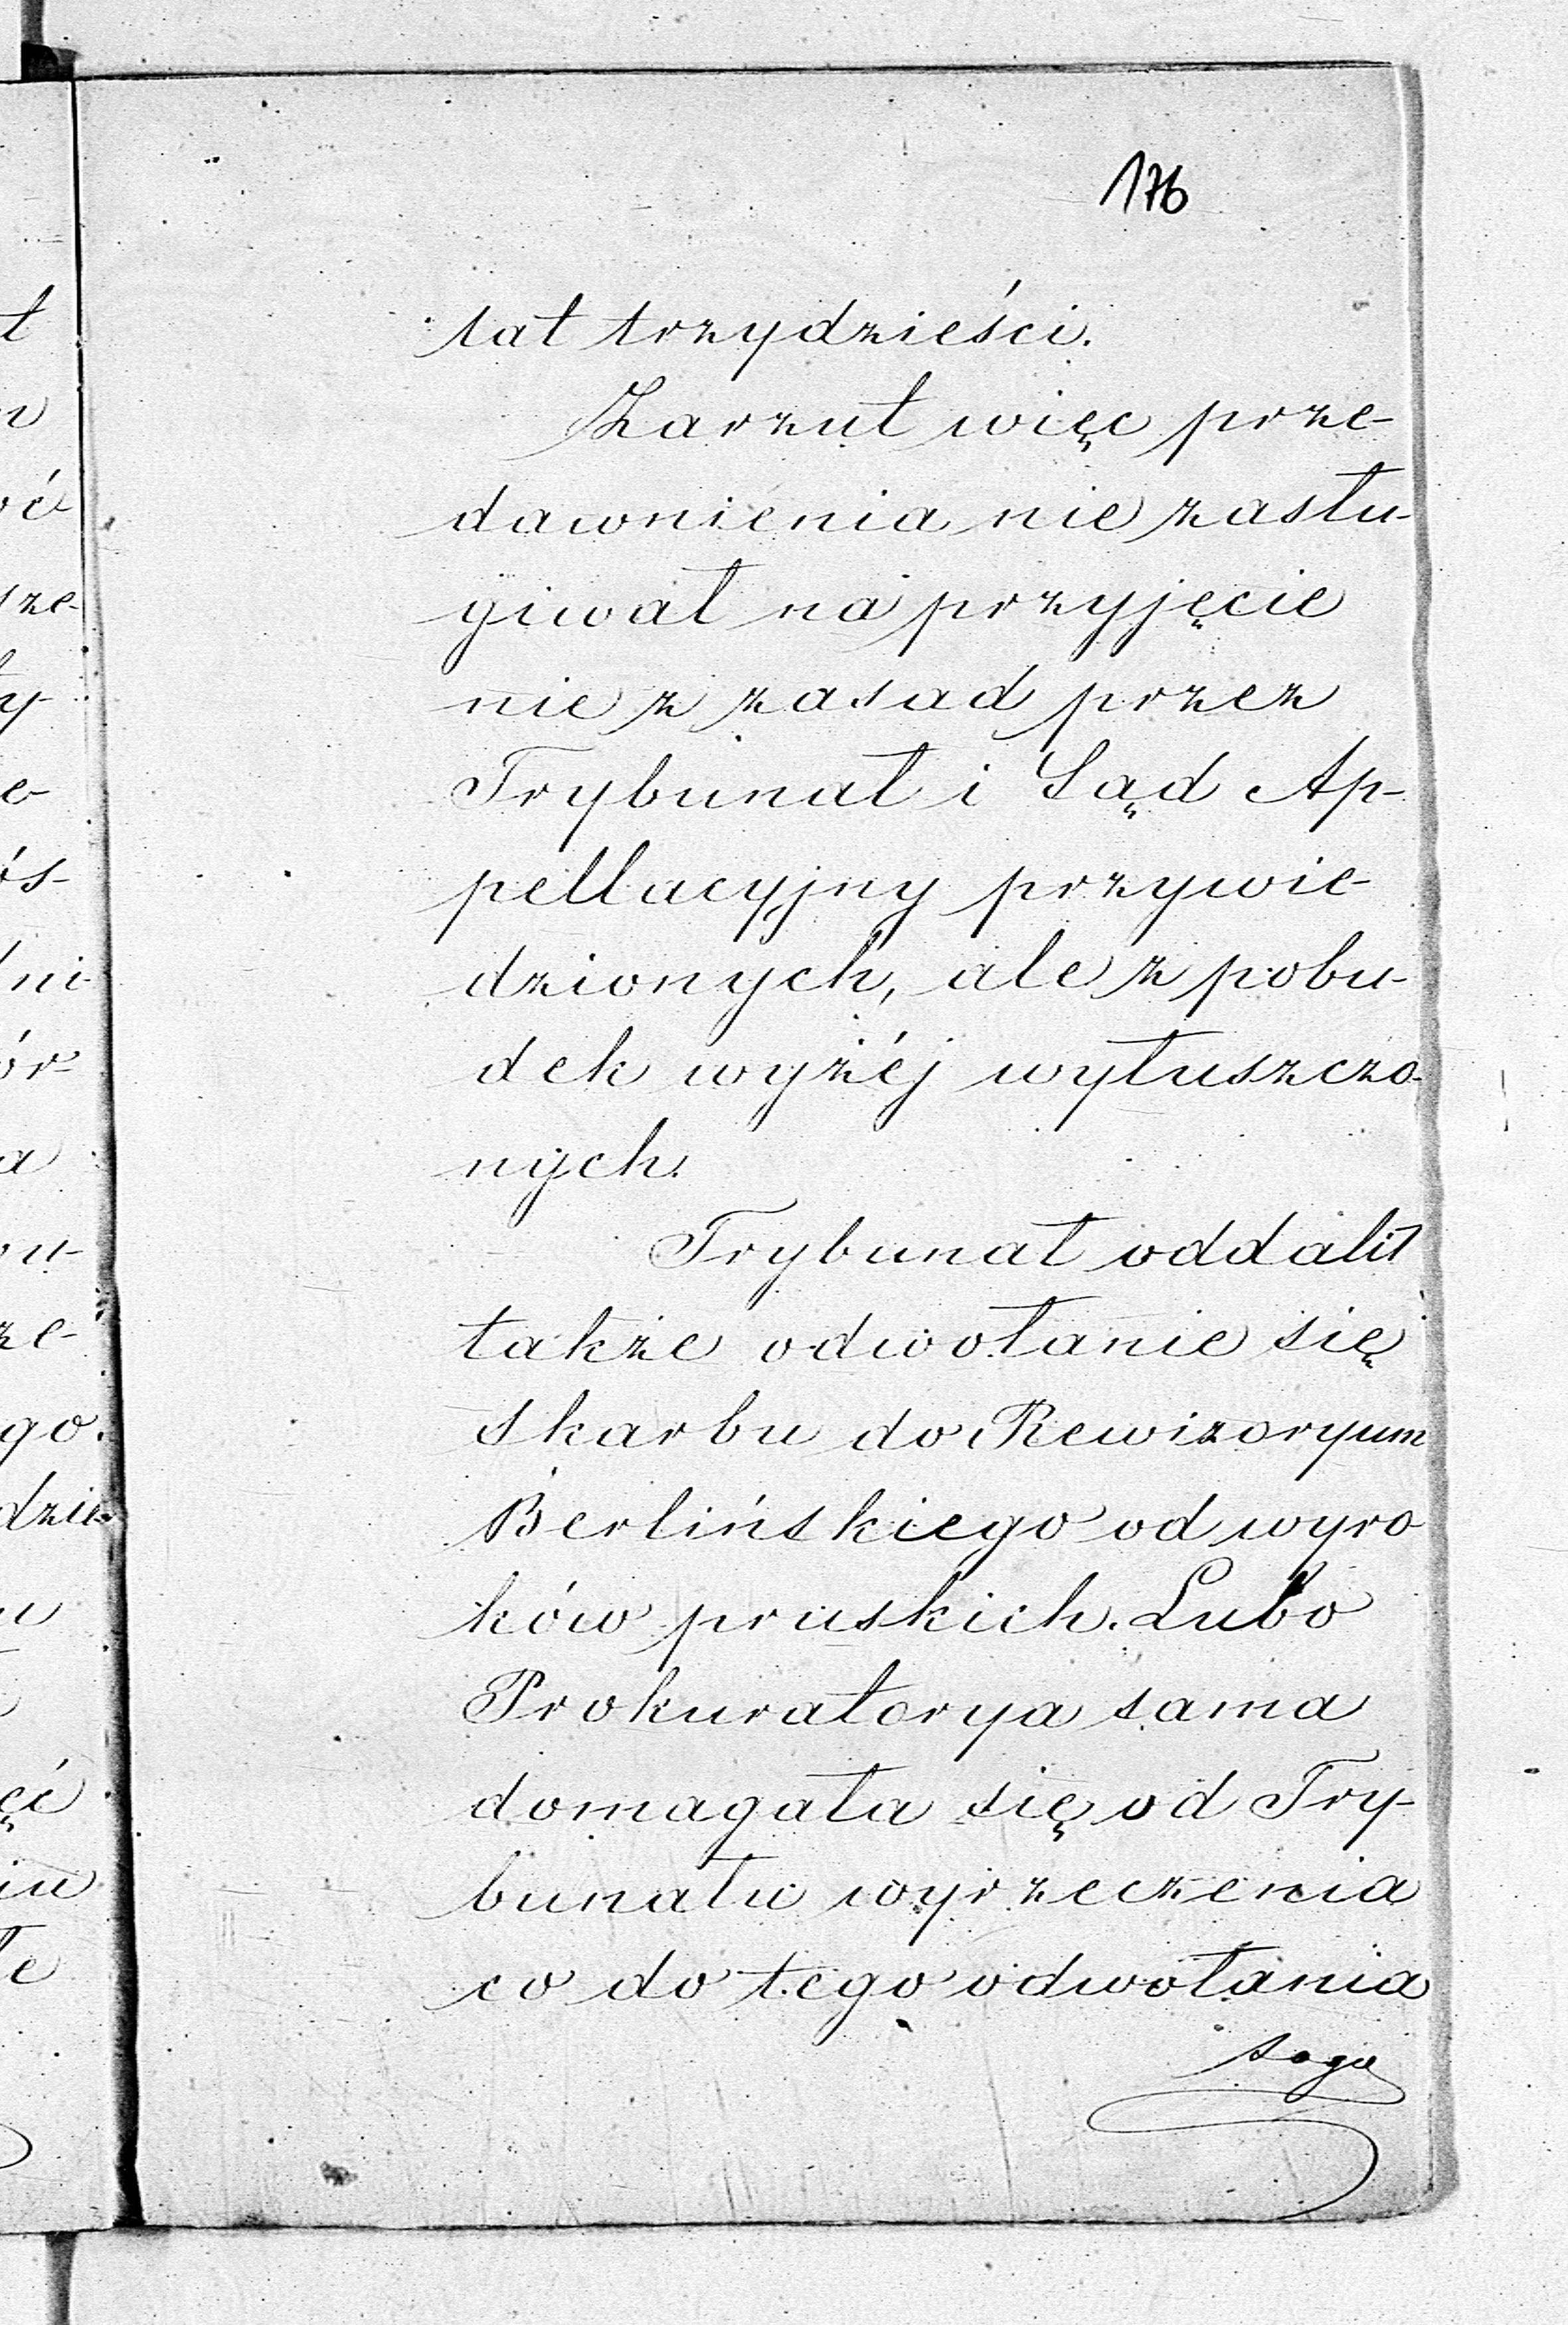 176
lat trzydzieści.
Zarzut więc prze-
dawnienia nie zasłu-
giwał na przyjęcie
nie z zasad przez
Trybunał i Sąd Ap-
pellacyjny przywie-
dzionych, ale z pobu-
dek wyżéj wyłuszczo-
nych.
Trybunał oddalił
także odwołanie się
skarbu do Rewizoryum
Berlińskiego od wyro
ków pruskich. Lubo
Prokuratorya sama
domagała się od Try-
bunału wyrzeczenia
co do tego odwołania